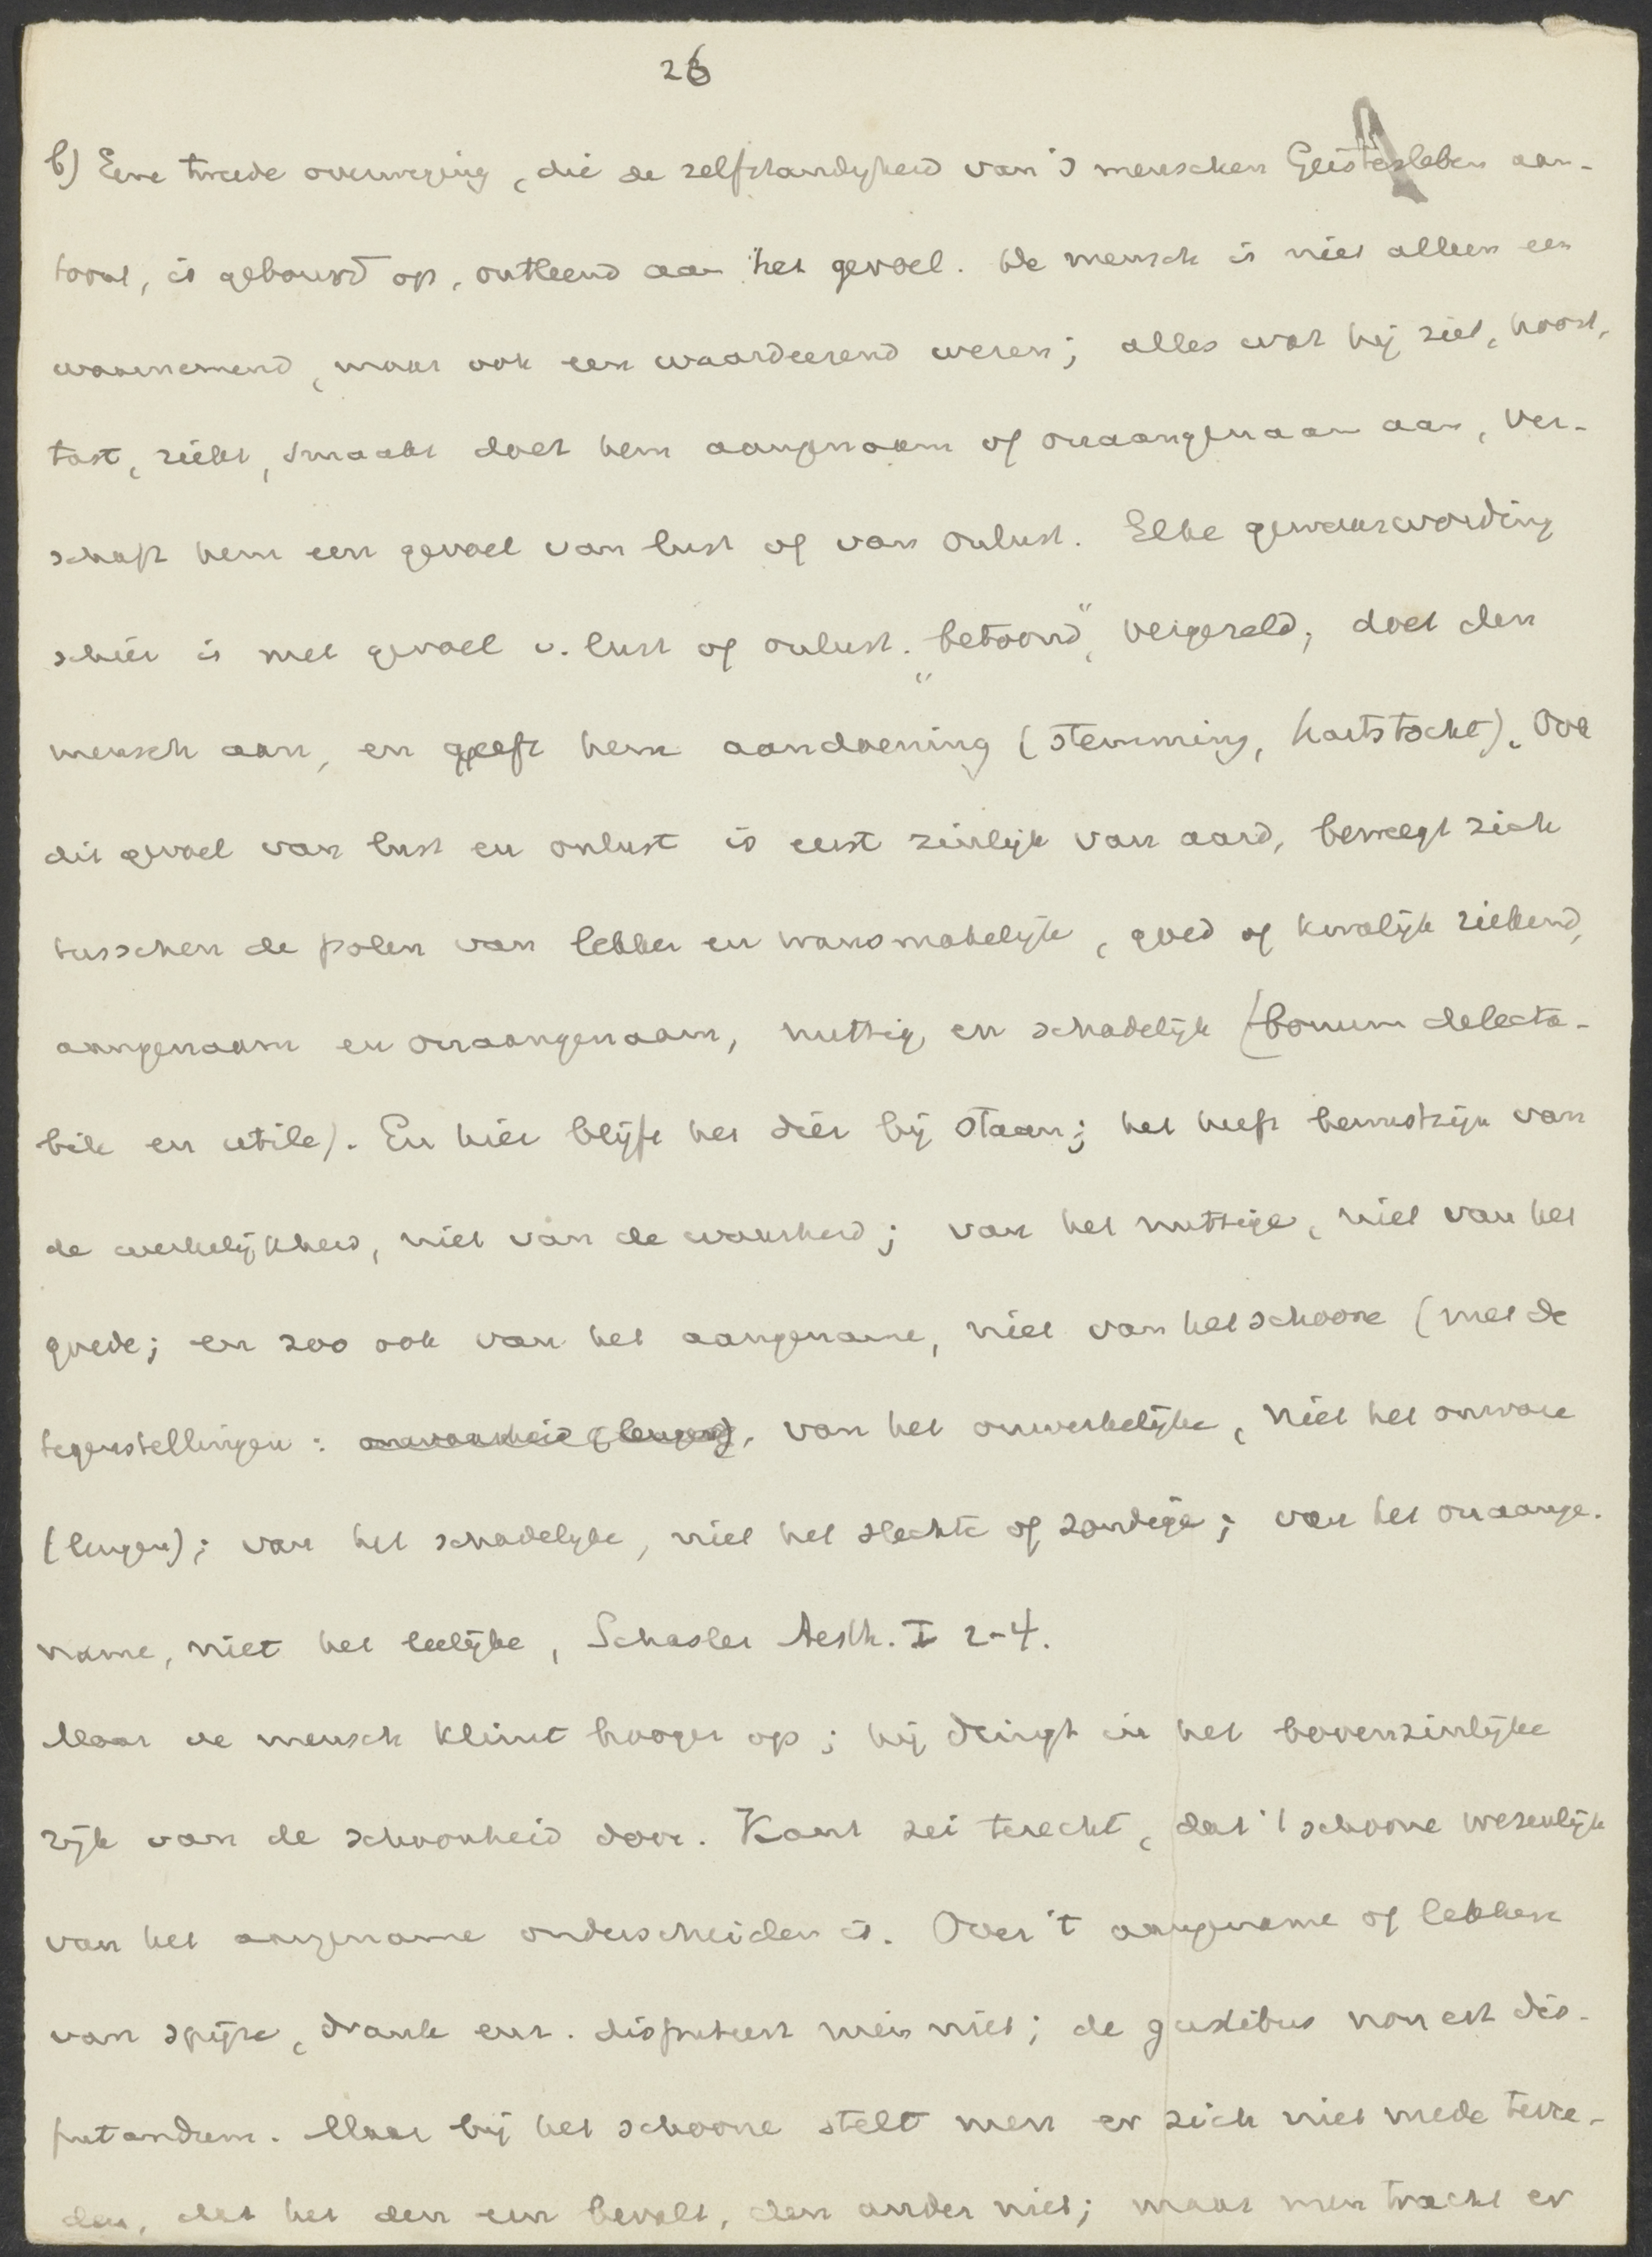 26
b) Eene tweede overweging, die de zelfstandigheid van 's menschen Geistesleben aan-
toont, is gebouwd op, ontleend aan het gevoel. De mensch is niet alleen een
waarnemend, maar ook een waardeerend wezen; alles wat hij ziet, hoort,
tast, riekt, smaakt doet hem aangenaam of onaangenaam aan, ver-
schaft hem een gevoel van lust of van onlust. Elke gewaarwording
schier is met gevoel v. lust of onlust. „betoond", vergezeld, doet den
mensch aan, en geeft hem aandoening (stemming, hartstocht). Ook
dit gevoel van lust en onlust is eerst zinlijk van aard, beweegt zich
tusschen de polen van lekker en wansmakelijk, goed of kwalijk riekend,
aangenaam en onaangenaam, nuttig en schadelijk (bonum delecta-
bile en utile). En hier blijft het dier bij staan; het heeft bewustzijn van
de werkelijkheid, niet van de waarheid; van het nuttige, niet van het
goede; en zoo ook van het aangename, niet van het schoone (met de
tegenstellingen: onwaarheid (leugen), van het onwerkelijke, niet het onware
(leugen); van het schadelijke, niet het slechte of zondige; van het onaange-
name, niet het leelijke, Schasler Aesth. I 2-4.
Maar de mensch klimt hooger op; hij dringt in het bovenzinlijke
rijk van de schoonheid door. Kant zei terecht, dat 't schoone wezenlijk
van het aangename onderscheiden is. Over 't aangename of lekkere
van spijze, drank enz. disputeert men niet; de gustibus non est dis-
putandum. Maar bij het schoone stelt men er zich niet mede tevre-
den, dat het den een bevalt, den ander niet; maar men tracht er